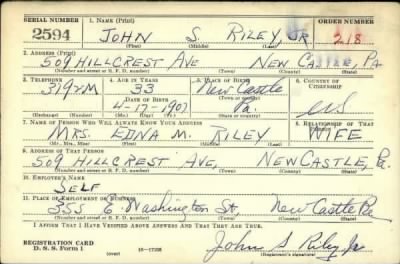 SERIAL NUMBER 1. NAME (Print) ORDER NUMBER
2594 JOHN S. RILEY, JR 218
(First) (Middle) (Last)
2. ADDRESS (Print)
509 HILLCREST AVE NEW CASTLE, PA
(Number and street or R. F. D. number) (Town) (County) (State)
3. TELEPHONE 4. AGE IN YEARS 5. PLACE OF BIRTH 6. COUNTRY OF CITIZENSHIP
3192M 33 New Castle
DATE OF BIRTH (Town or county)
4-17-1907 Pa. US
(Mo.) (Day) (Yr.) (State or country)
7. NAME OF PERSON WHO WILL ALWAYS KNOW YOUR ADDRESS 8. RELATIONSHIP OF THAT PERSON
MRS. EDNA M. RILEY WIFE
(Mr., Mrs., Miss) (First) (Middle) (Last)
9. ADDRESS OF THAT PERSON
509 HILLCREST AVE, NEW CASTLE, Pa.
(Number and street or R. F. D. number) (Town) (County) (State)
10. EMPLOYER'S NAME
SELF
11. PLACE OF EMPLOYMENT OR BUSINESS
355 E. Washington St, New Castle Pa
(Number and street or R. F. D. number) (Town) (County) (State)
I AFFIRM THAT I HAVE VERIFIED ABOVE ANSWERS AND THAT THEY ARE TRUE.
REGISTRATION CARD
D. S. S. Form 1 (over) 16-17105 John S Riley Jr
(Registrant's signature)